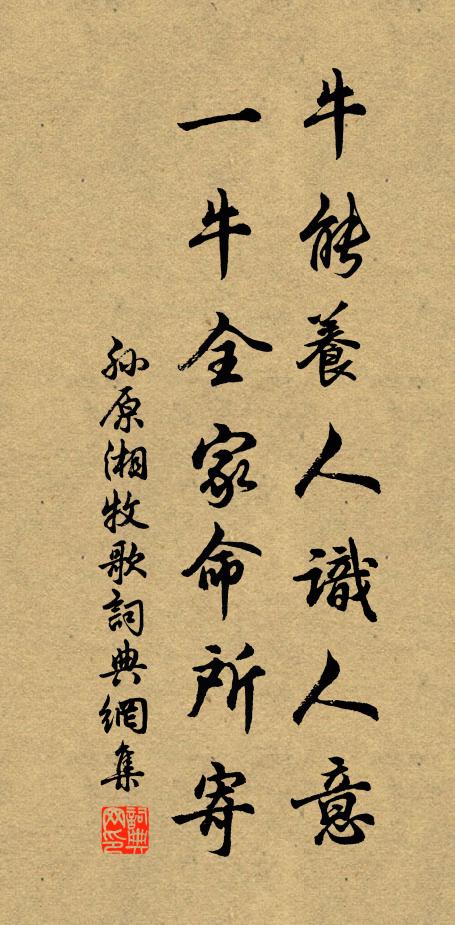 牛能養人識人意
一牛全家命所寄
孫原湘牧歌詞典網集
詞典
网印